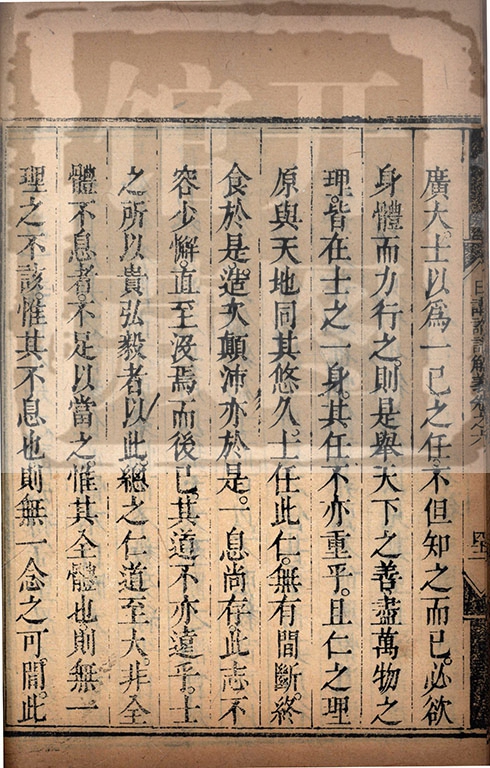 廣大士以爲一己之任不但知之而已必欲
身體而力行之則是舉天下之善盡萬物之
理皆在士之一身其任不亦重乎且仁之理
原與天地同其悠久士任此仁無有間斷終
食於是造次顛沛亦於是一息尚存此志不
容少懈直至沒焉而後已其道不亦遠乎士
之所以貴弘毅者以此總之仁道至大非全
體不息者不足以當之惟其全體也則無一
理之不該惟其不息也則無一念之可間此